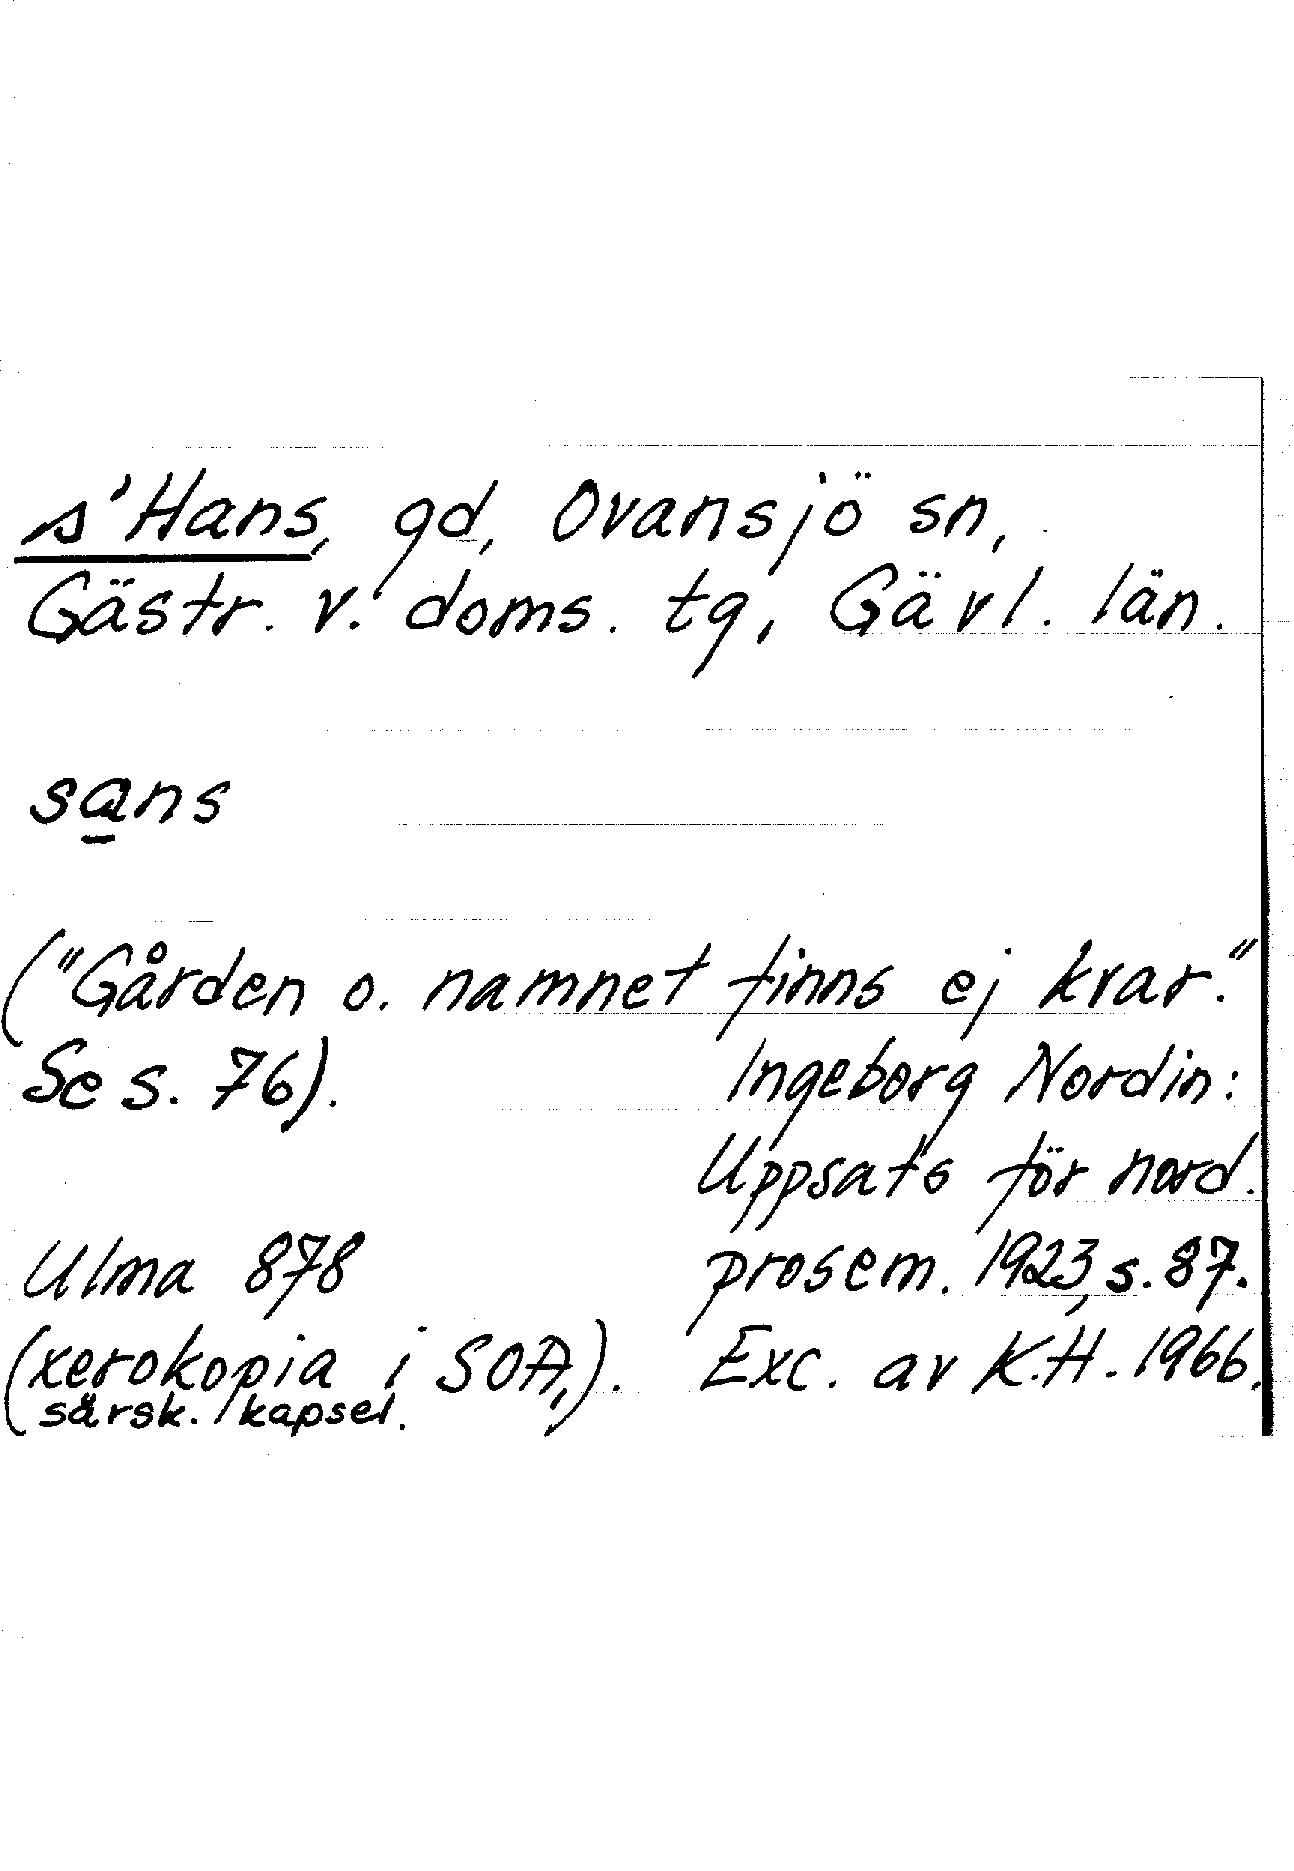 s'Hans, gd, Ovansjö sn,
Gästr. v. doms. tg, Gävl. län.
sans
("Gården o. namnet finns ej kvar."
Se s. 76).
Ingeborg Nordin:
Uppsats för nord.
prosem. 1923, s. 87.
Exc. av K.H. 1966.
Ulma 878
(xerokopia i SOA,).
särsk. kapsel.